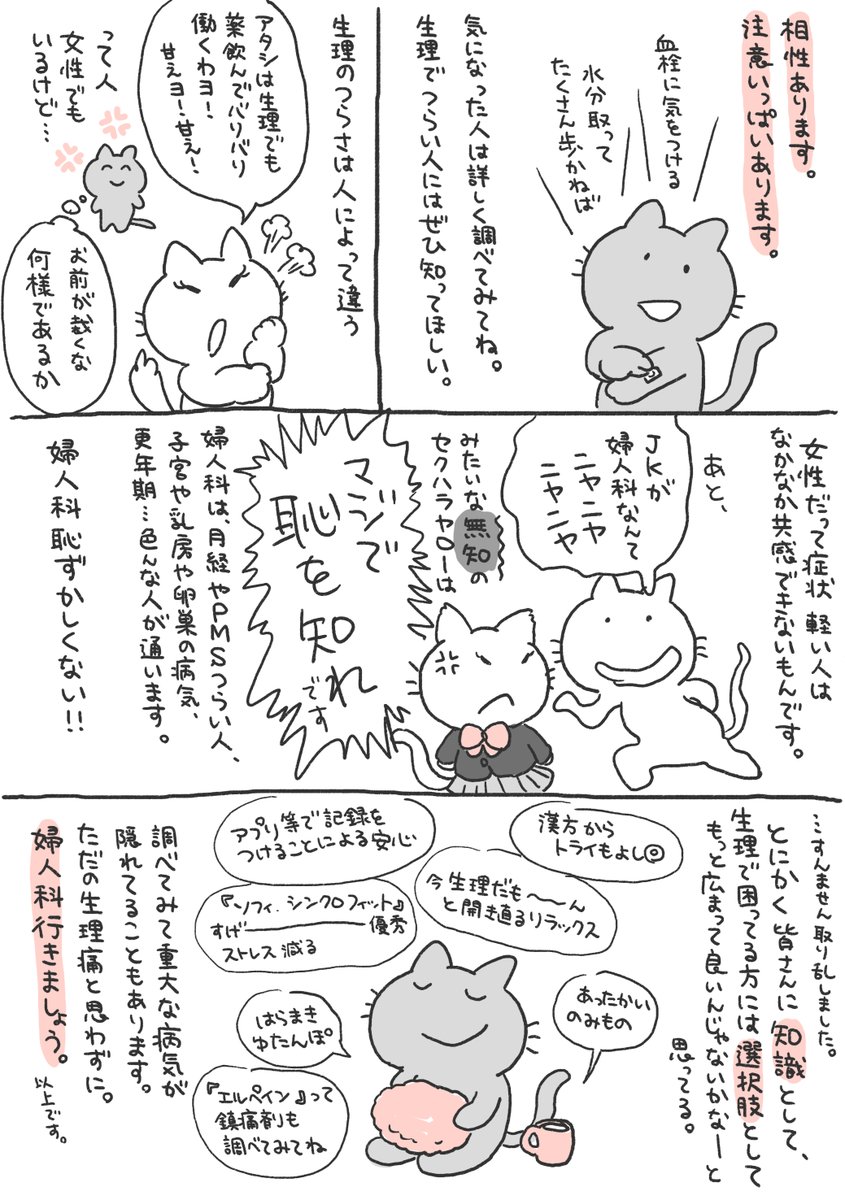 相性あります。
注意いっぱいあります。
血栓に気をつける
水分取って
たくさん歩かねば
気になった人は詳しく調べてみてね。
生理でつらい人にはぜひ知ってほしい。
生理のつらさは人によって違う
アタシは生理でも
薬飲んでバリバリ
働くわヨー!
甘ぇヨー!甘ぇ!
って人
女性でも
いるけど…
お前が裁くな
何様であるか
女性だって症状軽い人は
なかなか共感できないもんです。
あと、
JKが
婦人科なんて
ニヤニヤ
ニヤニヤ
みたいな無知の
セクハラヤローは
マジで
恥を知れです
婦人科は、月経やPMSつらい人、
子宮や乳房や卵巣の病気、
更年期…色んな人が通います。
婦人科恥ずかしくない!!
…すんません取り乱しました。
とにかく皆さんに知識として、
生理で困ってる方には選択肢として
もっと広まって良いんじゃないかなーと
思ってる。
漢方から
トライもよし◎
アプリ等で記録を
つけることによる安心
今生理だも〜〜ん
と開き直るリラックス
『ソフィ.シンクロフィット』
すげー優秀
ストレス減る
あったかい
のみもの
はらまき
ゆたんぽ
『エルペイン』って
鎮痛剤も
調べてみてね
調べてみて重大な病気が
隠れてることもあります。
ただの生理痛と思わずに。
婦人科行きましょう。
以上です。